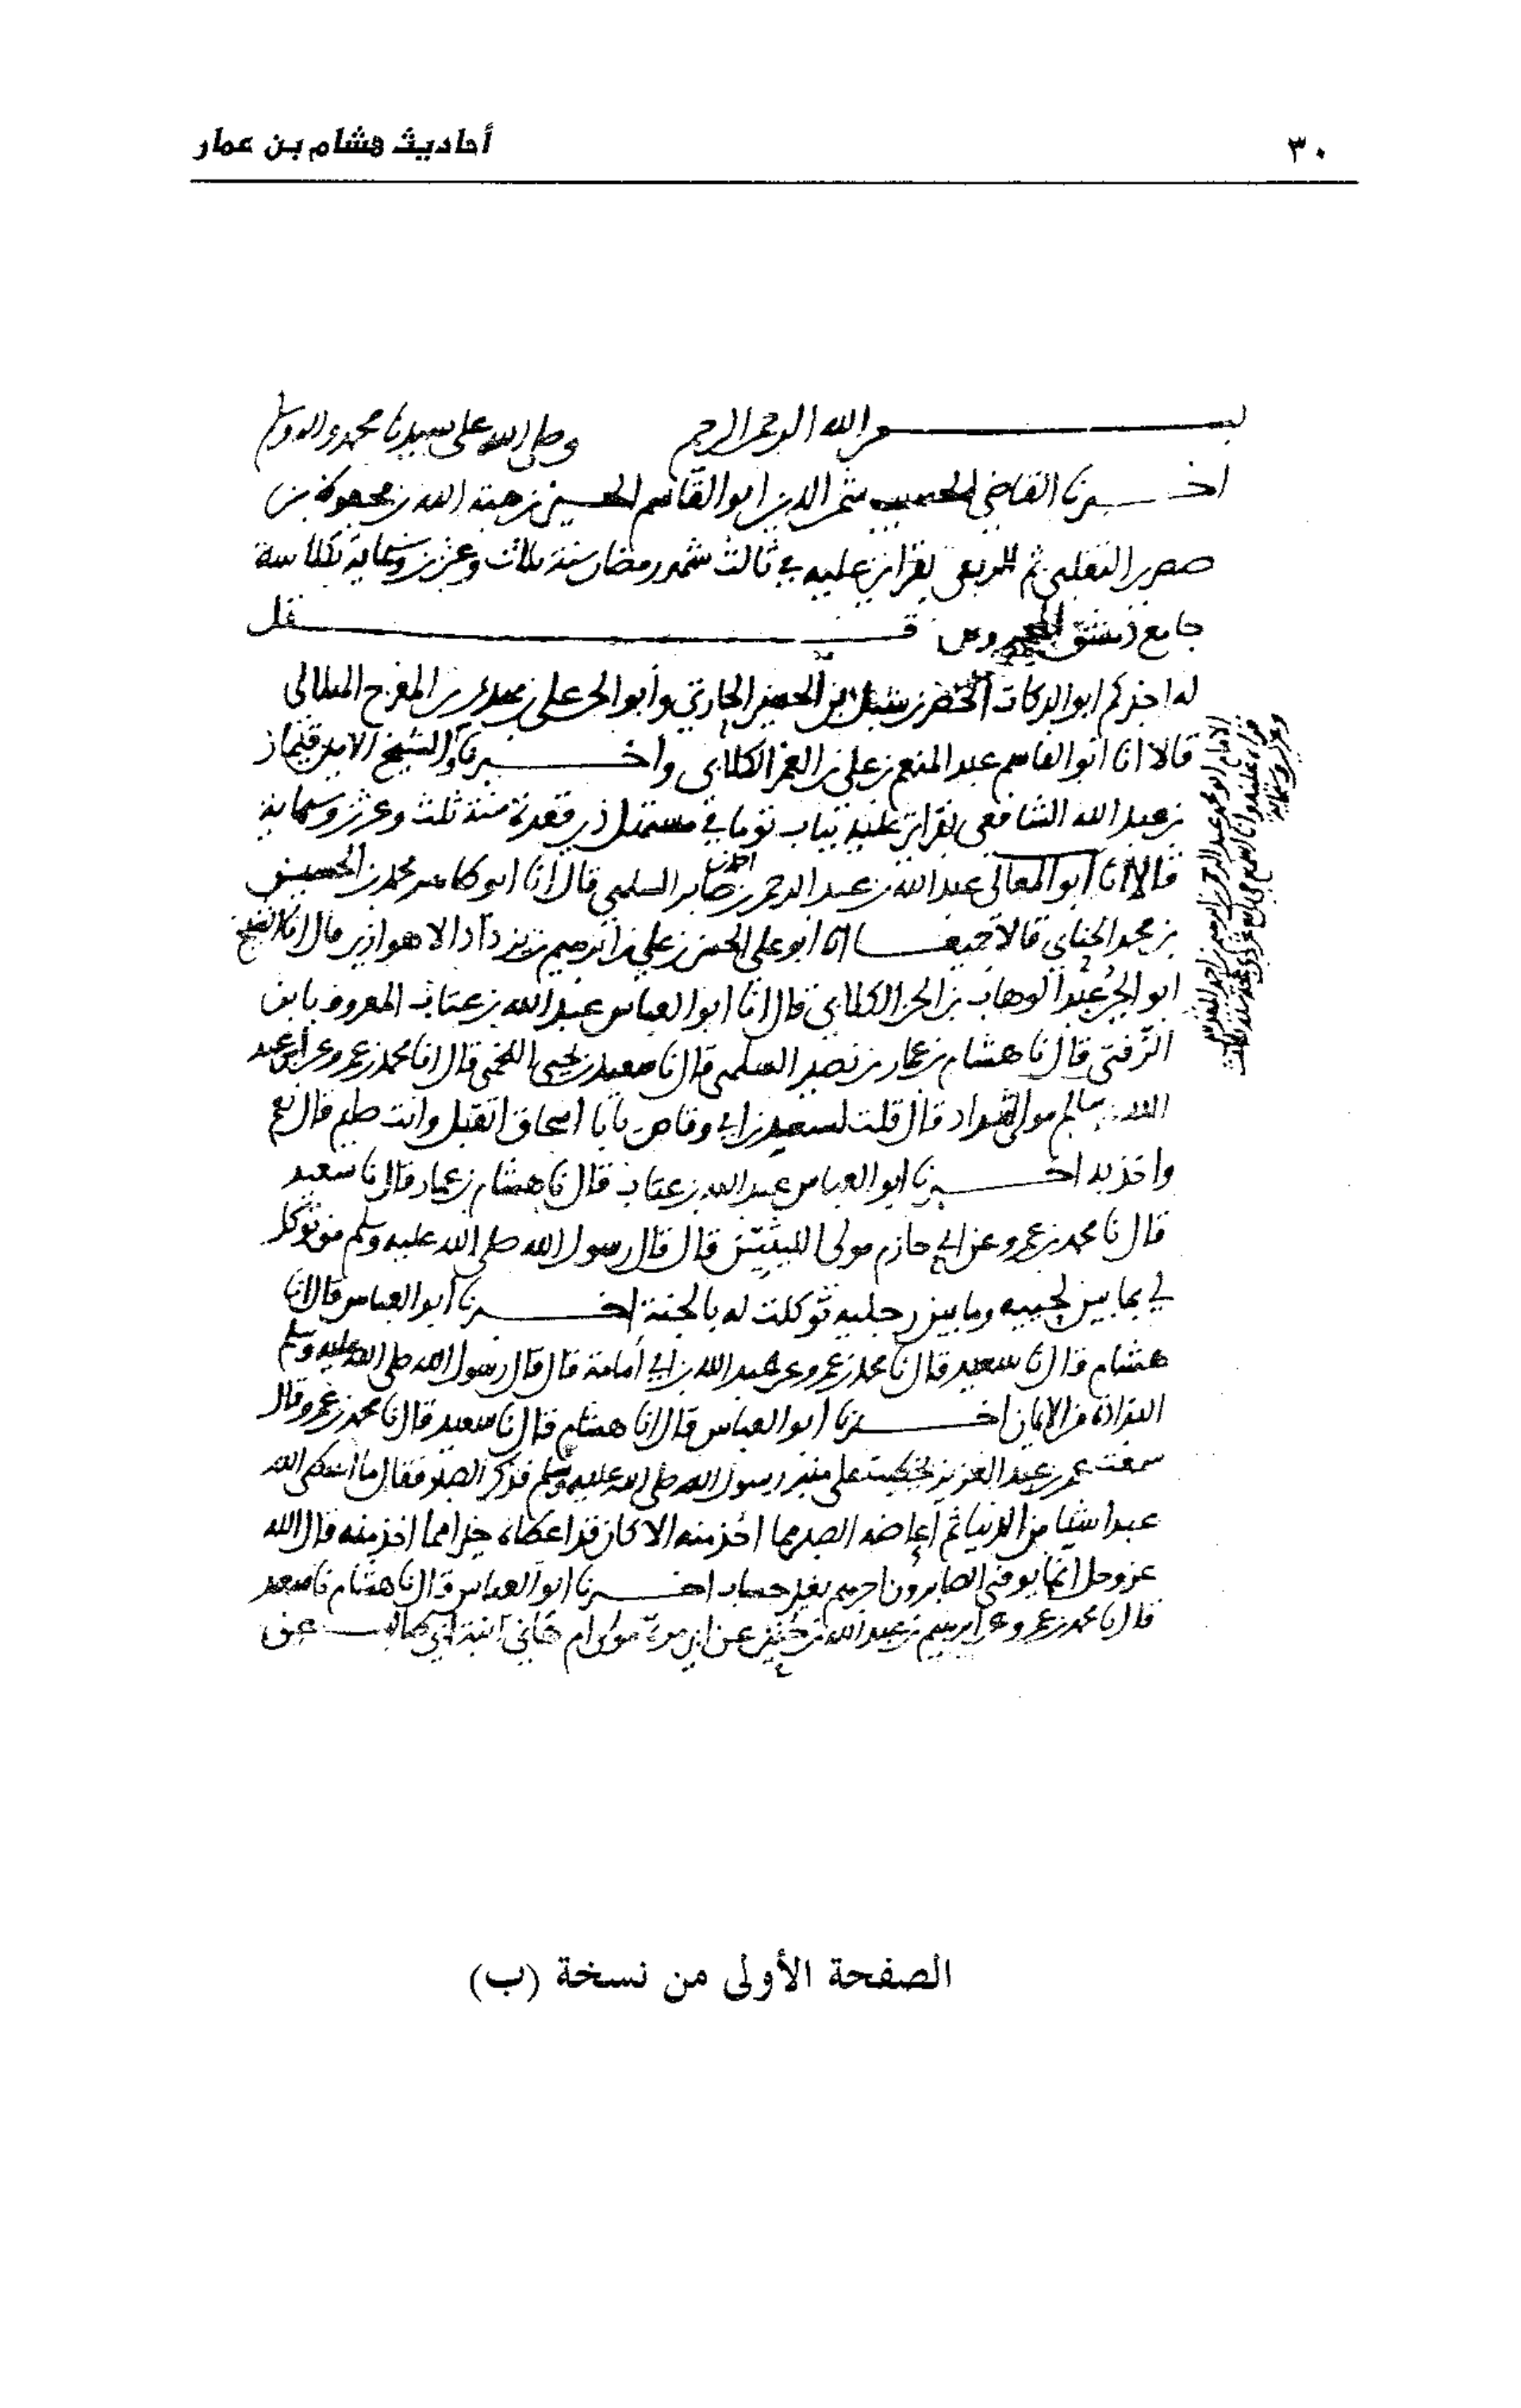 ٣٠
أحاديث هشام بن عمار
بسم الله الرحمن الرحيم وصلى الله على سيدنا محمد واله وسلم
اخبرنا القاضي شمس الدين ابو القاسم الحسين بن هبة الله بن محفوظ بن
صصرى التغلبي ثم الربعي بقراتي عليه في ثالث شهر رمضان سنة ثلاث وعشرين وستماية بكلاسة
جامع دمشق المحروس قـــيل
له اخبركم ابو البركات الخضر بن شبل بن الحسين الحارثي وأبو الحسن علي بن
قالا انا ابو القاسم عبد المنعم بن علي بن الغمر الكلابي واخبرنا الشيخ الامين قيماز
بن عبد الله الشافعي بقراتي عليه بباب توما في مستهل ذي قعدة سنة ثلث وعشرين وستماية
قال انا أبو المعالي عبد الله بن عبد الرحمن بن احمد بن صابر السلمي قال انا ابو طاهر محمد بن الحسين
بن محمد الحنائي قالا جميعا انا ابو علي الحسن بن علي بن ابرهيم بن يزداد الاهوازي قال انا الشيخ
ابو الحسين عبد الوهاب بن الحسن الكلابي قال انا ابو العباس عبد الله بن عتاب المعروف بابن
الزفتي قال نا هشام بن عمار بن نصير السلمي قال نا سعيد بن يحيى اللخمي قال انا محمد بن عمرو عن أبي عبد
الله سالم مولى شداد قال قلت لسعد بن ابي وقاص يابا اسحاق اتقبل وانت صايم قال نعم
اخبرنا ابو العباس عبد الله بن عتاب قال نا هشام بن عمار قال نا سعيد
قال نا محمد بن عمرو عن ابي حازم مولى الليثيين قال قال رسول الله صلى الله عليه وسلم من توكل
لي بما بين لحييه وما بين رجليه توكلت له بالجنة اخبرنا أبو العباس قال نا
هشام قال نا سعيد قال نا محمد بن عمرو عن عبد الله بن ابي أمامة قال قال رسول الله صلى الله عليه وسلم
البذاذة من الايمان اخبرنا ابو العباس قال نا هشام قال نا سعيد قال نا محمد بن عمرو قال
سمعت عمر بن عبد العزيز يخطب على منبر رسول الله صلى الله عليه وسلم فذكر الصبر فقال ما اعطى الله
عبدا شيا من الدنيا ثم أعاضه الصبر مما اخذ منه الا كان قد اعطاه خيرا مما اخذ منه قال الله
عز وجل انما يوفى الصابرون اجرهم بغير حساب اخبرنا ابو العباس قال نا هشام نا سعيد
قال نا محمد بن عمرو عن ابرهيم بن عبد الله بن حنين عن ابي مرة مولى ام هاني ابنة ابي طالب عن
الصفحة الأولى من نسخة (ب)